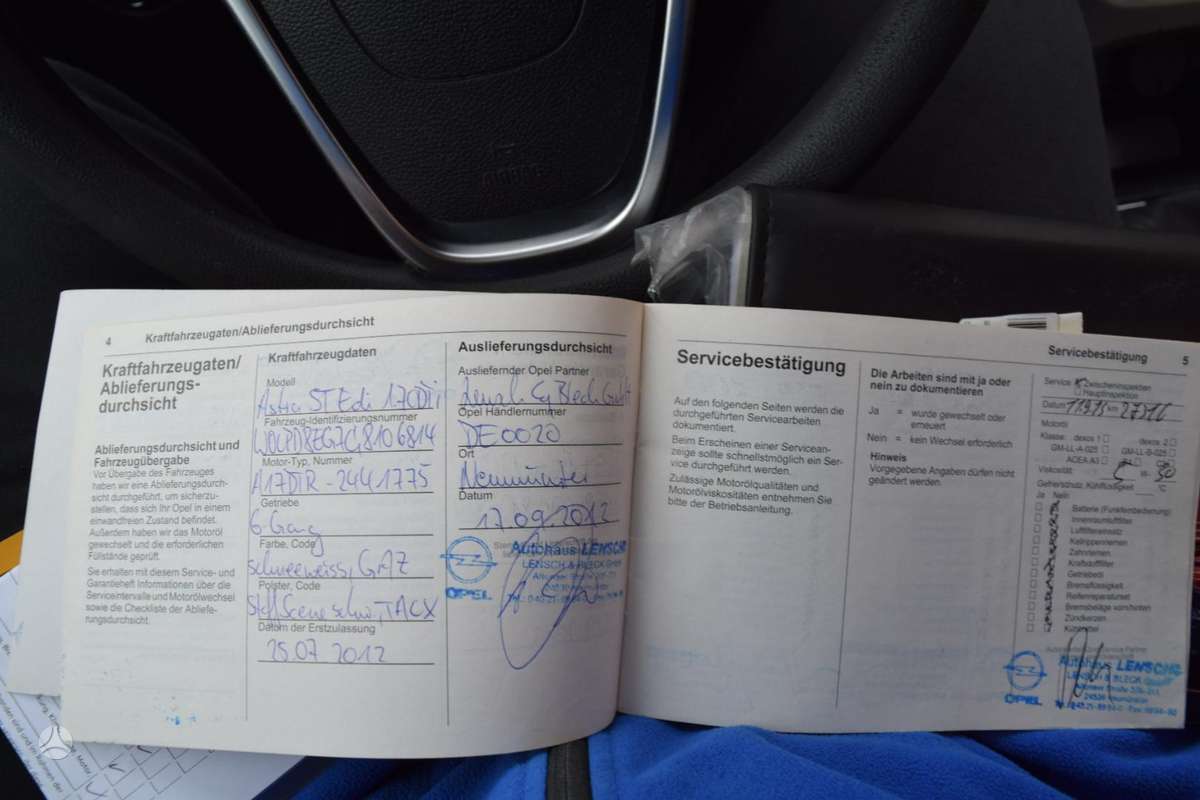 AIRBAG
4
Kraftfahrzeugaten/Ablieferungsdurchsicht
Kraftfahrzeugaten/
Ablieferungs-
durchsicht
Ablieferungsdurchsicht und
Fahrzeugübergabe
Vor Übergabe des Fahrzeuges
haben wir eine Ablieferungsdurch-
sicht durchgeführt, um sicherzu-
stellen, dass sich Ihr Opel in einem
einwandfreien Zustand befindet.
Außerdem haben wir das Motoröl
gewechselt und die erforderlichen
Füllstände geprüft.
Sie erhalten mit diesem Service- und
Garantieheft Informationen über die
Serviceintervalle und Motorölwechsel
sowie die Checkliste der Abliefe-
rungsdurchsicht.
Kraftfahrzeugdaten
Modell
Astra ST Edi 1.7CDTI
Fahrzeug-Identifizierungsnummer
W0LPD8EG7C8106814
Motor-Typ, Nummer
A17DTR - 2441775
Getriebe
6 Gang
Farbe, Code
schneeweiss, GAZ
Polster, Code
Stoff Scene schw, TACX
Datum der Erstzulassung
25.07 2012
Auslieferungsdurchsicht
Ausliefernder Opel Partner
Lensch & Bleck GmbH
Opel Händlernummer
DE0020
Ort
Neumünster
Datum
17.09.2012
Autohaus LENSCH
LENSCH & BLECK GmbH
OPEL
Servicebestätigung
5
Servicebestätigung
Auf den folgenden Seiten werden die
durchgeführten Servicearbeiten
dokumentiert.
Beim Erscheinen einer Servicean-
zeige sollte schnellstmöglich ein Ser-
vice durchgeführt werden.
Zulässige Motorölqualitäten und
Motorölviskositäten entnehmen Sie
bitte der Betriebsanleitung.
Die Arbeiten sind mit ja oder
nein zu dokumentieren
Ja = wurde gewechselt oder
erneuert
Nein = kein Wechsel erforderlich
Hinweis
Vorgegebene Angaben dürfen nicht
geändert werden.
Service Zwischeninspektion
Hauptinspektion
Datum km
Motoröl
Klasse: dexos 1 dexos 2
GM-LL-A-025 GM-LL-B-025
ACEA A3
Viskosität: 5 W- 30
Gefrierschutz, Kühlflüssigkeit °C
Ja Nein
Batterie (Funkfernbedienung)
Innenraumluftfilter
Luftfiltereinsatz
Keilrippenriemen
Zahnriemen
Kraftstofffilter
Getriebeöl
Bremsflüssigkeit
Reifenreparaturset
Bremsbeläge vorn/hinten
Zündkerzen
Kühlmittel
Autohaus LENSCH
LENSCH & BLECK GmbH
OPEL